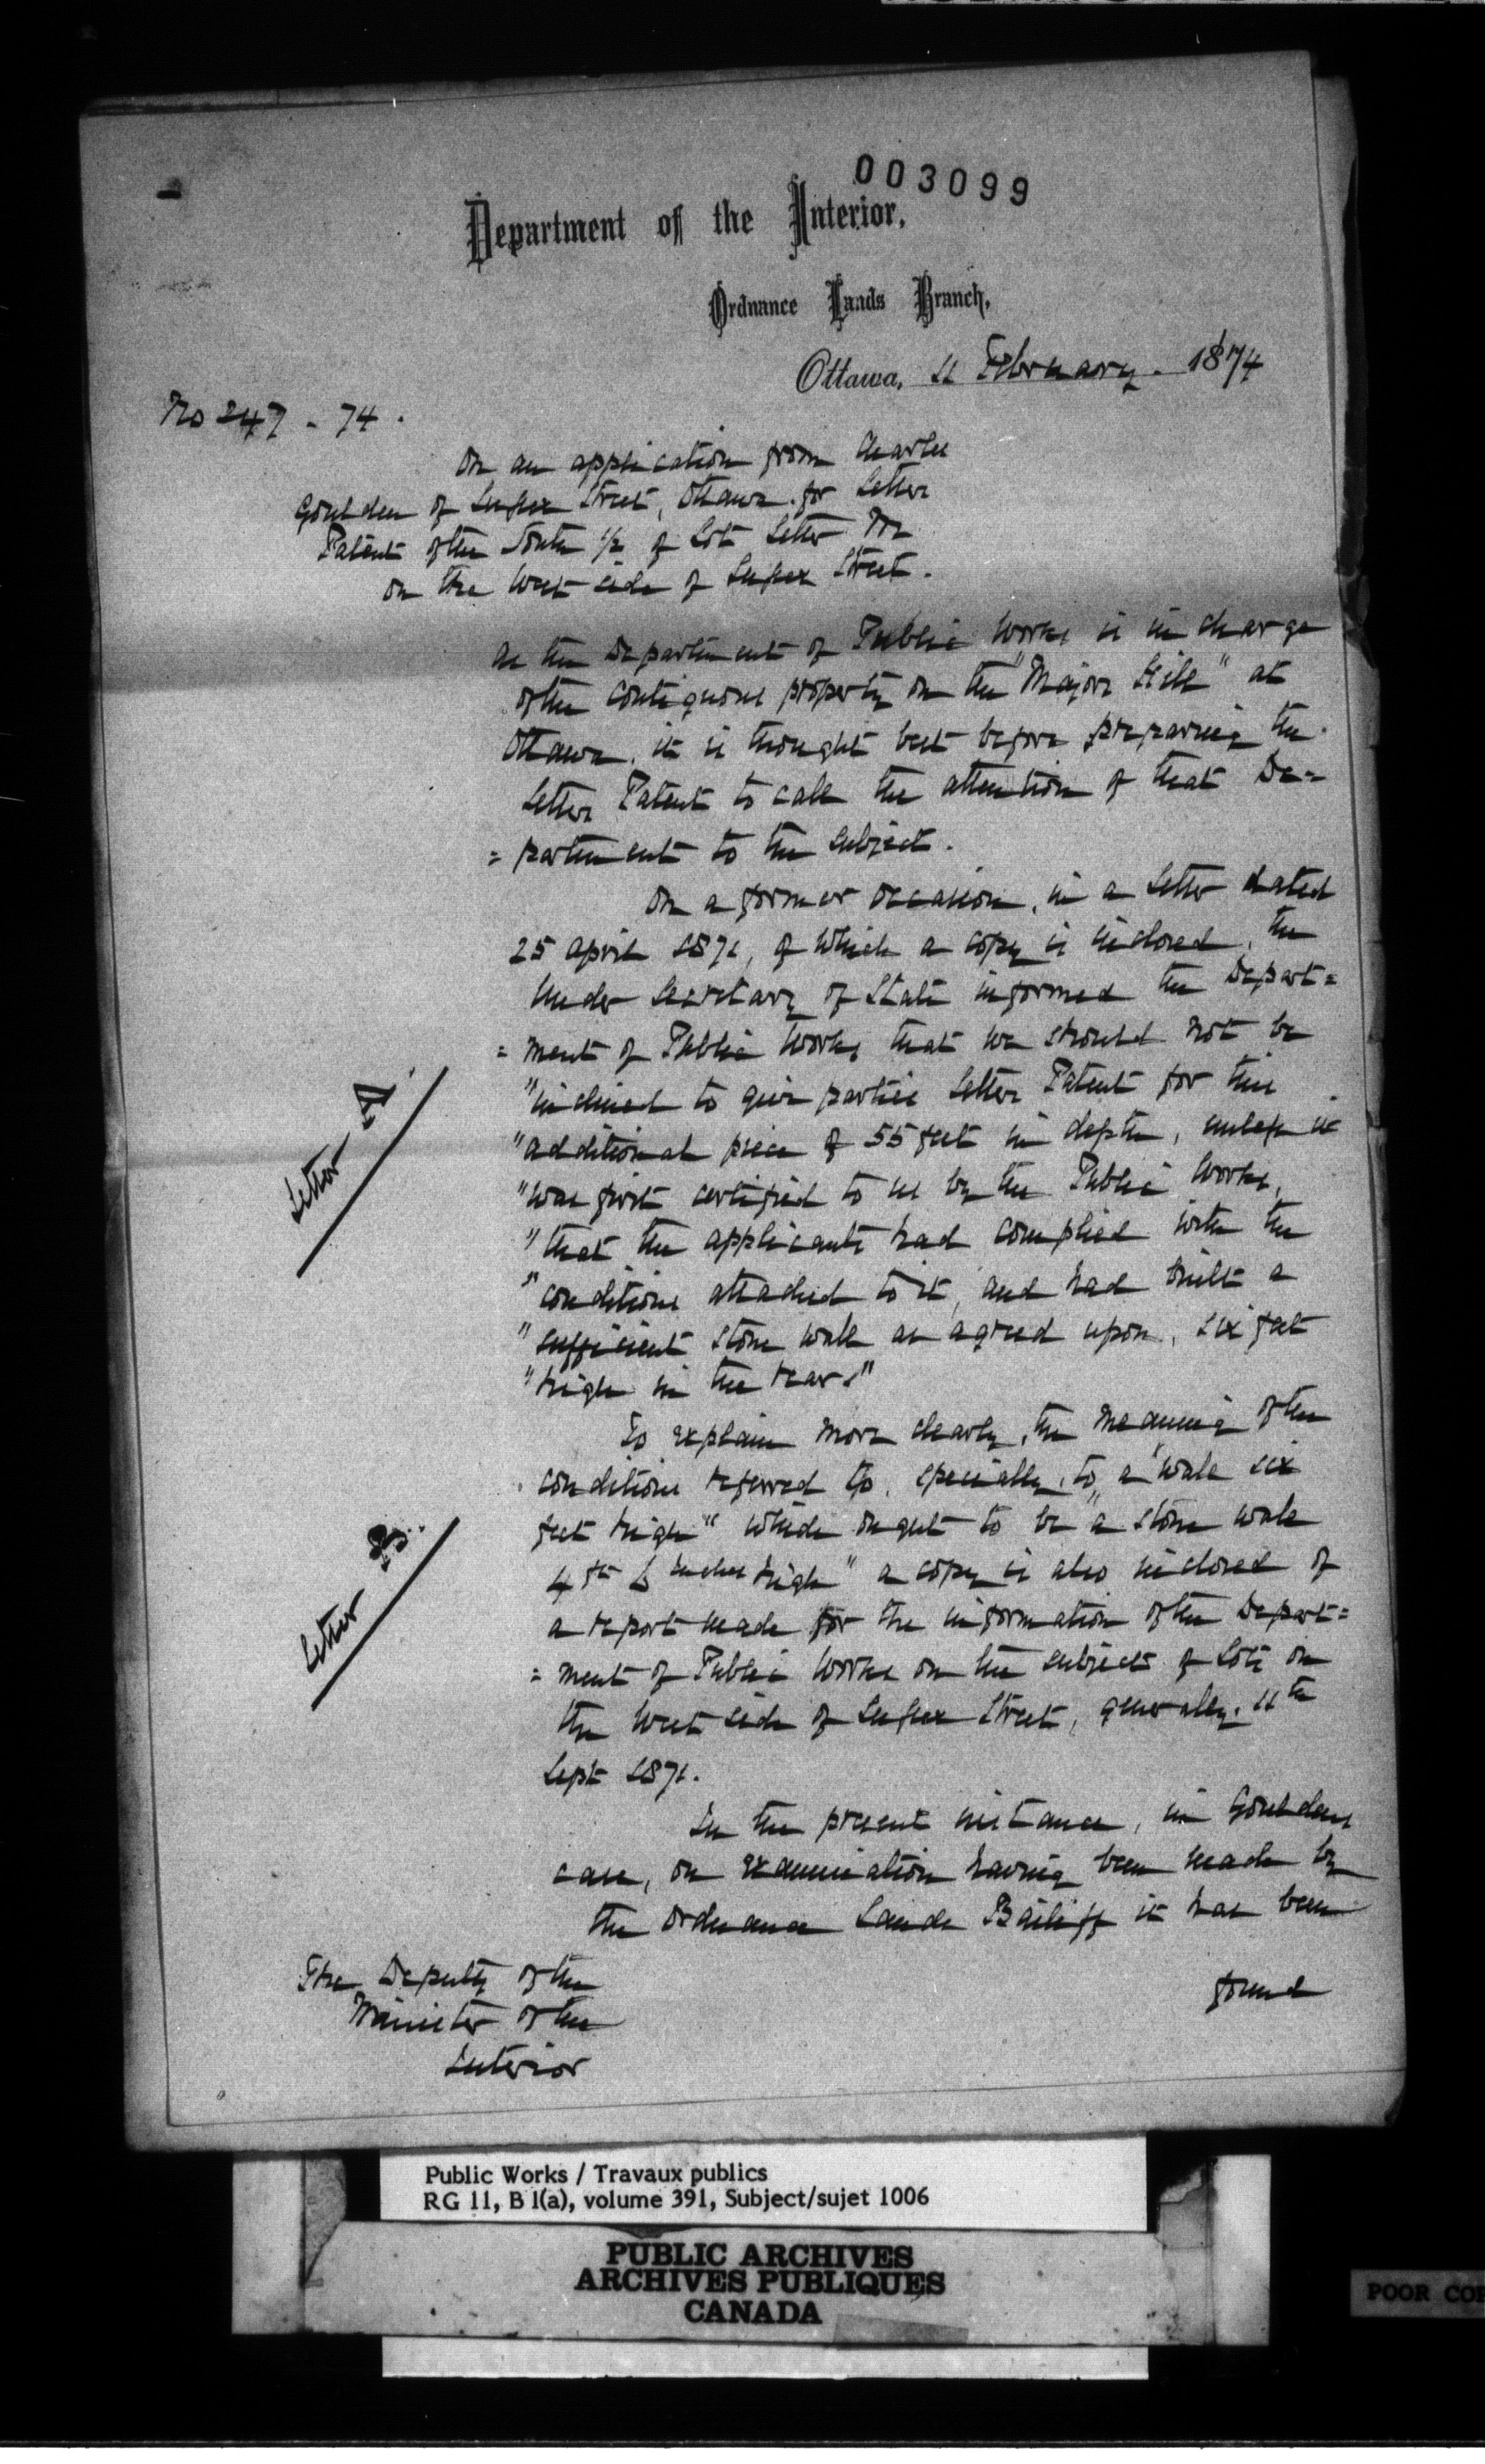 003099
Department of the Interior,
Ordnance Lands Branch,
Ottawa, 11 February. 1874
No 247 - 74.
On an application from Charles
Goulden of Sussex Street, Ottawa. for Letters
Patent of the South 1/2 of Lot Letter
on the West side of Sussex Street.
As the Department of Public Works is in charge
of the contiguous property on the "Majors Hill" at
Ottawa, it is thought best before preparing the
Letters Patent to call the attention of that De=
=partment to the subject.
On a former occasion, in a Letter dated
25 April 1871, of which a copy is inclosed, the
Under Secretary of State informed the Depart=
=ment of Public Works that we should not be
"inclined to give parties Letters Patent for this
"additional piece of 55 feet in depth, unless it
"was first certified to us by the Public Works,
"that the applicants had complied with the
"conditions attached to it, and had built a
"sufficient stone wall as agreed upon, six feet
"high in the rear."
Letter A.
To explain more clearly, the meaning of the
conditions referred to, specially, to a "wall six
feet high" which ought to be "a stone wall
4 ft 6 inches high" a copy is also inclosed of
a report made for the information of the Depart=
=ment of Public Works on the subject of Lots on
the West side of Sussex Street, generally. 11th
Sept 1871.
Letter B.
In the present instance, in Gouldens
case, on examination having been made by
the Ordnance Lands Bailiff it has been
found
The Deputy of the
Minister of the
Interior
Public Works / Travaux publics
RG 11, B 1(a), volume 391, Subject/sujet 1006
PUBLIC ARCHIVES
ARCHIVES PUBLIQUES
CANADA
POOR COP